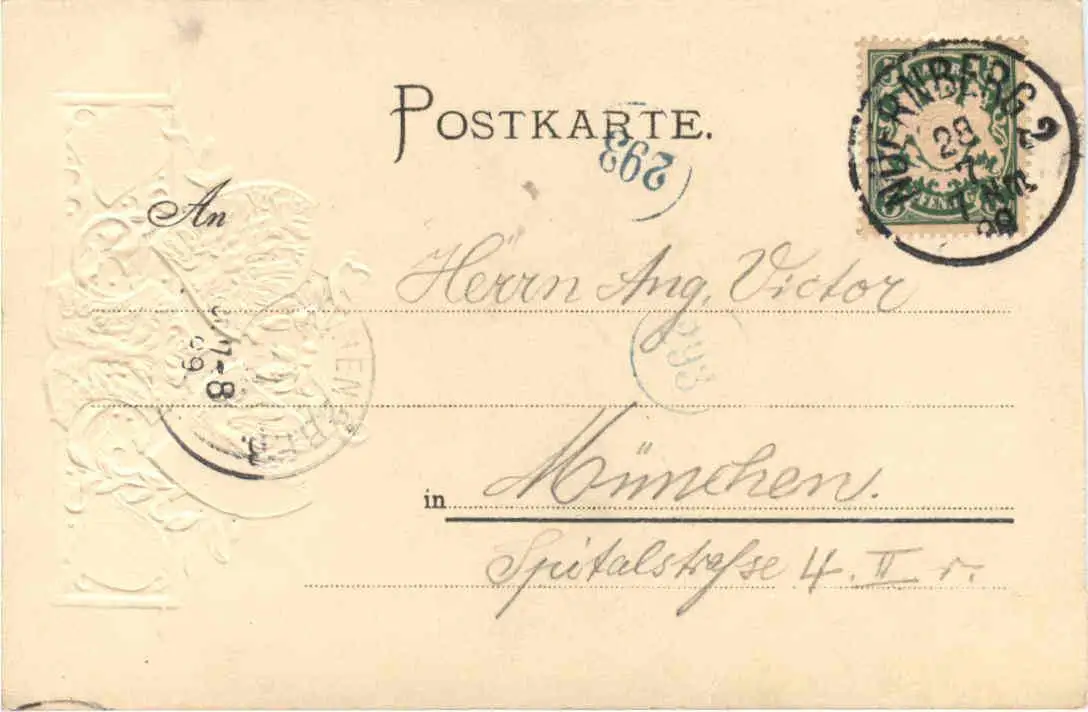 POSTKARTE.
NUERNBERG 2
28
7
7 Nm
99
293
An
Herrn Aug. Victor
293
7-8
99
in München.
Spitalstraße 4. II r.